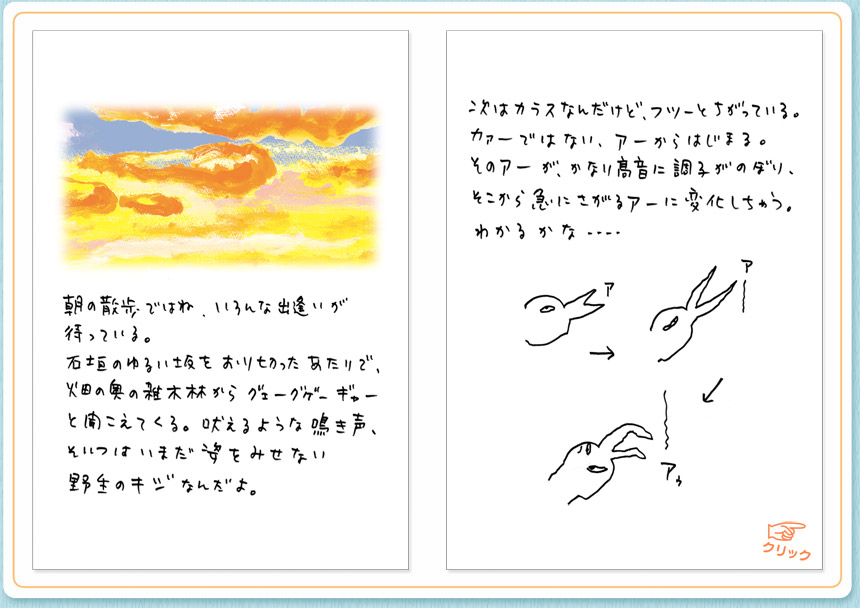 朝の散歩ではね、いろんな出逢いが
待っている。
石垣のゆるい坂をおり切ったあたりで、
畑の奥の雑木林からグェーグゲーギャー
と聞こえてくる。吠えるような鳴き声、
そいつはいまだ姿をみせない
野生のキジなんだよ。
次はカラスなんだけど、フツーとちがっている。
カァーではない、アーからはじまる。
そのアーが、かなり高音に調子がのぼり、
そこから急にさがるアーに変化しちゃう。
わかるかな‥‥
ア
ア
アゥ
クリック